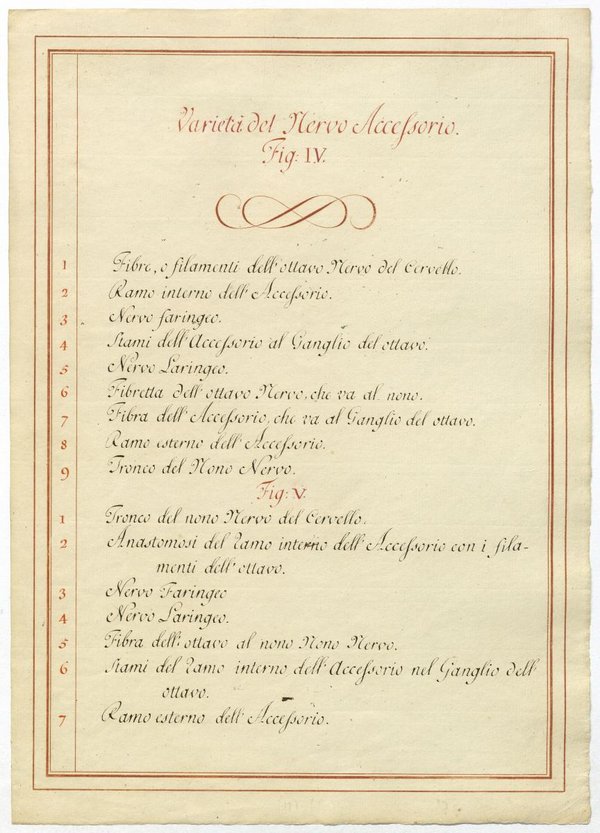 Varietà del Nervo Accessorio.
Fig: IV.
1 Fibre, o filamenti dell' ottavo Nervo del Cervello.
2 Ramo interno dell' Accessorio.
3 Nervo faringeo.
4 Stami dell' Accessorio al Ganglio del ottavo.
5 Nervo Laringeo.
6 Fibretta dell' ottavo Nervo, che va al nono.
7 Fibra dell' Accessorio, che va al Ganglio del ottavo.
8 Ramo esterno dell' Accessorio.
9 Tronco del Nono Nervo.
Fig: V.
1 Tronco del nono Nervo del Cervello.
2 Anastomosi del ramo interno dell' Accessorio con i fila-
menti dell' ottavo.
3 Nervo Faringeo
4 Nervo Laringeo.
5 Fibra dell' ottavo al nono Nono Nervo.
6 Stami del ramo interno dell' Accessorio nel Ganglio dell'
ottavo.
7 Ramo esterno dell' Accessorio.